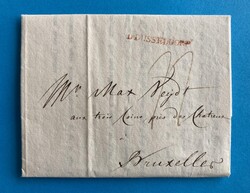 DUSSELDORF
Mr. Max Weydt
aux trois Coins près des Chatreux
à
Bruxelles